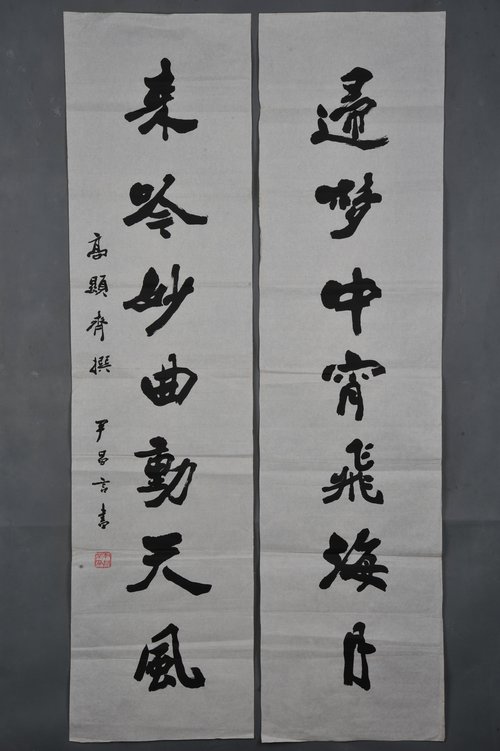 歸夢中宵飛海月
来吟妙曲動天風
高顯齊撰
尹昌言書